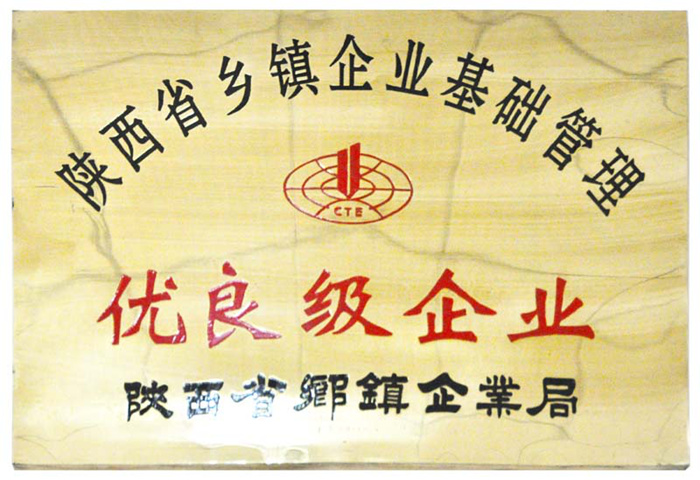 陕西省乡镇企业基础管理
CTE
优良级企业
陕西省鄉鎮企業局